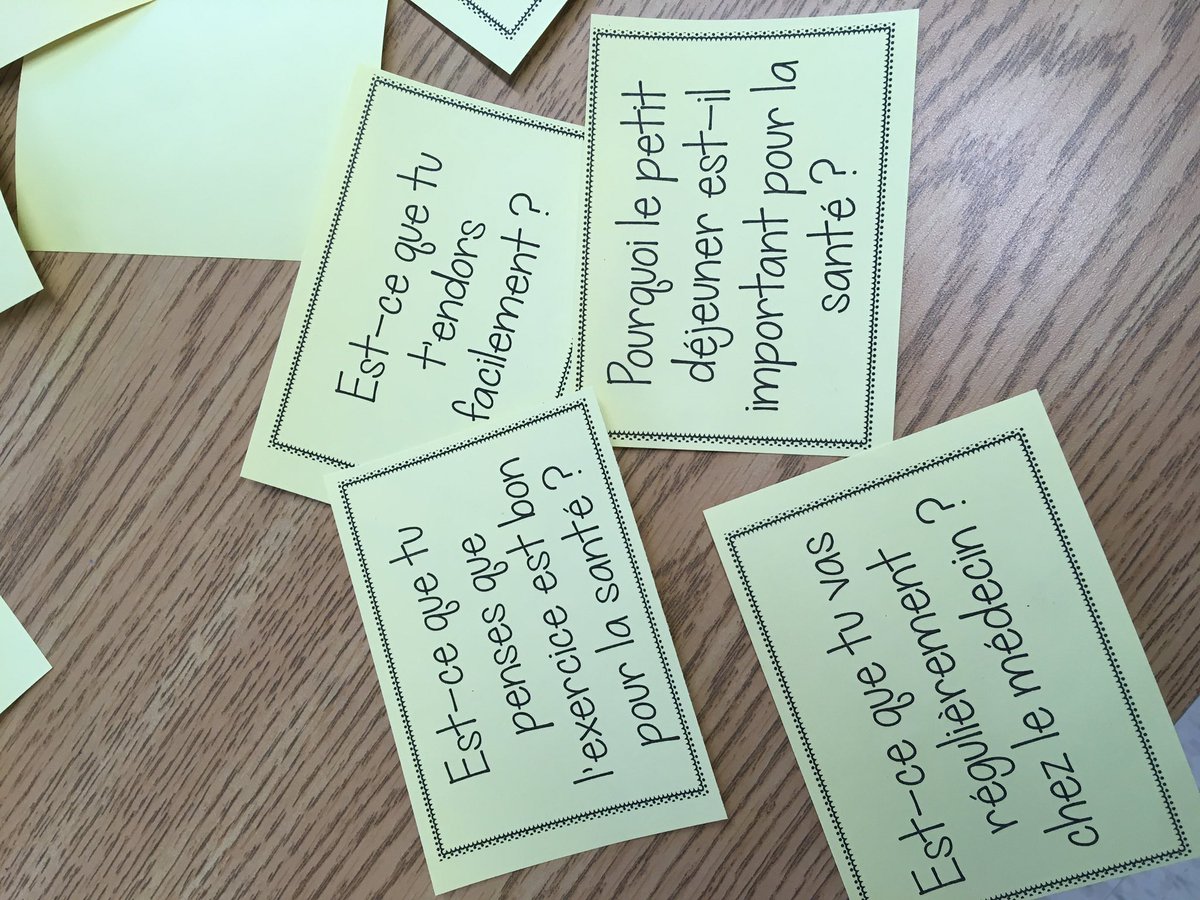 Est-ce que tu
t'endors
facilement ?
Pourquoi le petit
déjeuner est-il
important pour la
santé ?
Est-ce que tu
penses que
l'exercice est bon
pour la santé ?
Est-ce que tu vas
régulièrement
chez le médecin ?